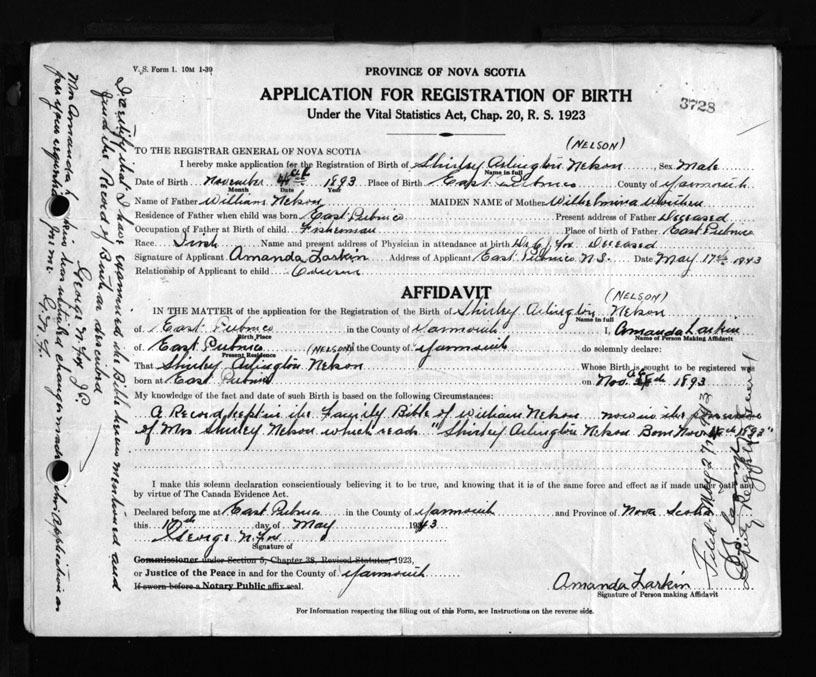 V. S. Form 1. 10M 1-39
PROVINCE OF NOVA SCOTIA
APPLICATION FOR REGISTRATION OF BIRTH
3728
Under the Vital Statistics Act, Chap. 20, R. S. 1923
(NELSON)
TO THE REGISTRAR GENERAL OF NOVA SCOTIA
I hereby make application for the Registration of Birth of Shirley Arlington Nelson, Sex Male
Name in full
Date of Birth November 1893 Place of Birth East Pubnico County of Yarmouth
Month Date Year
Name of Father William Nelson MAIDEN NAME of Mother Wilhelmina
Residence of Father when child was born East Pubnico Present address of Father Deceased
Occupation of Father at Birth of child Fisherman Place of birth of Father East Pubnico
Race Irish Name and present address of Physician in attendance at birth Dr Fox Deceased
Signature of Applicant Amanda Larkin Address of Applicant East Pubnico N.S. Date May 17th 1943
Relationship of Applicant to child Cousin
AFFIDAVIT
(NELSON)
IN THE MATTER of the application for Registration of the Birth of Shirley Arlington Nelson
Name in full
of East Pubnico in the County of Yarmouth I, Amanda Larkin
Birth Place Name of Person Making Affidavit
of East Pubnico in the County of Yarmouth do solemnly declare:
Present Residence (NELSON)
That Shirley Arlington Nelson Whose Birth is sought to be registered was
born at East Pubnico on Nov. 1893
My knowledge of the fact and date of such Birth is based on the following Circumstances:
A Record kept in the Family Bible of William Nelson now in the possession
of Mrs Shirley Nelson which reads "Shirley Arlington Nelson Born Nov 1893"
I make this solemn declaration conscientiously believing it to be true, and knowing that it is of the same force and effect as if made under oath and
by virtue of The Canada Evidence Act.
Declared before me at East Pubnico in the County of Yarmouth and Province of Nova Scotia
this 17th day of May 1943
George N. Fox
Signature of
Commissioner under Section 5, Chapter 38, Revised Statutes, 1923,
or Justice of the Peace in and for the County of Yarmouth
If sworn before a Notary Public affix seal.
Amanda Larkin
Signature of Person making Affidavit
For Information respecting the filling out of this Form, see Instructions on the reverse side.
I certify that I have examined the Bible herein mentioned and
find the Record of Birth as described
George N. Fox J.P.
Mrs Amanda Larkin has initialed changes made in Application as
per your request for me. G.N.F.
Filed May 27th 1943
Deputy Registrar